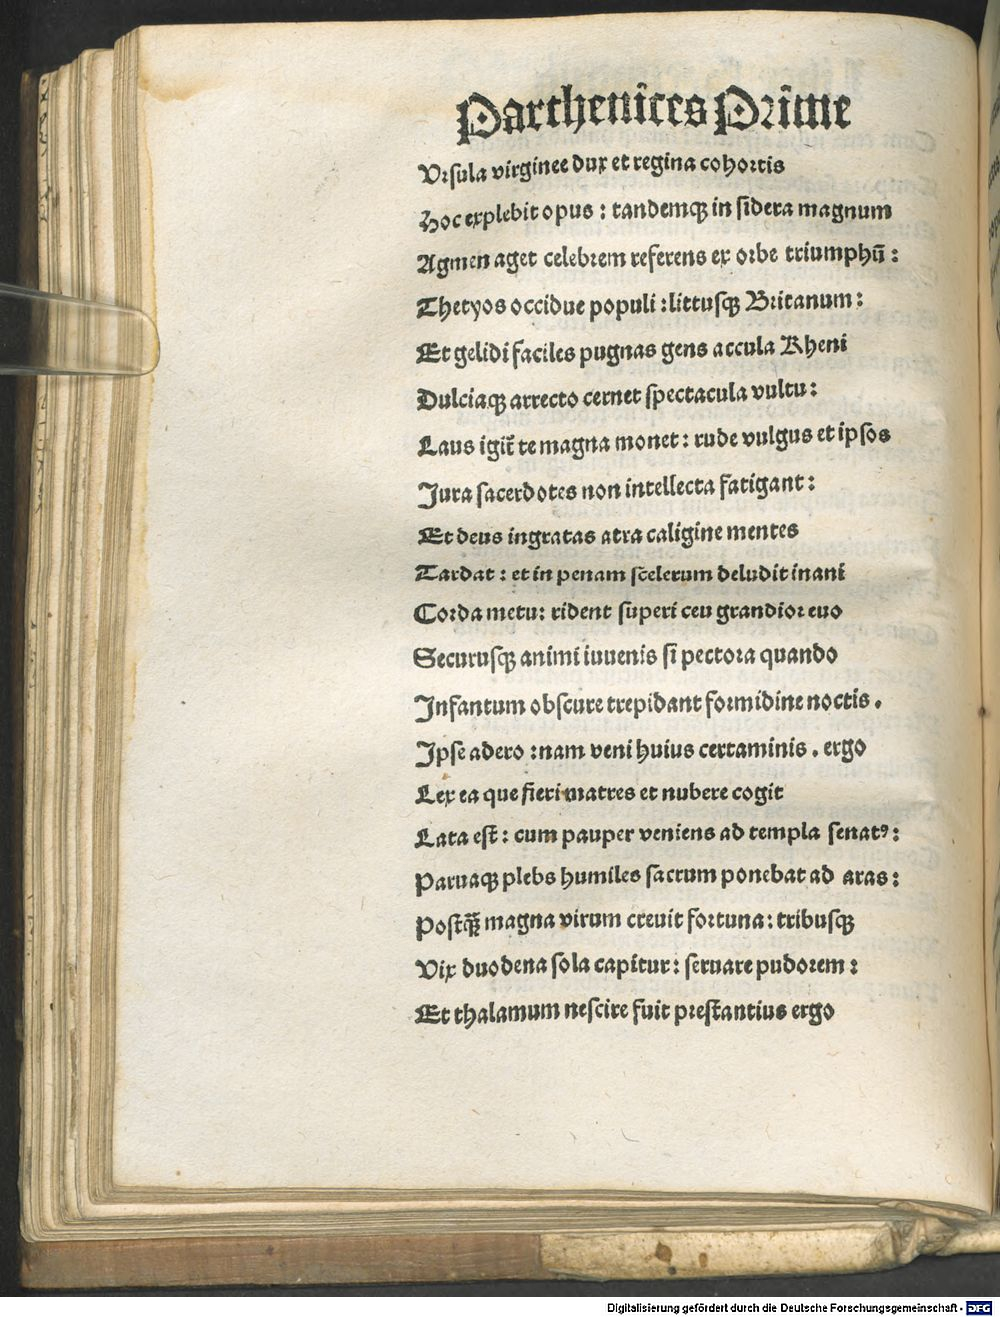 Parthenices Prime
Vrsula virginee dux et regina cohortis
Hoc explebit opus : tandemqꝫ in sidera magnum
Agmen aget celebrem referens ex orbe triumphū :
Thetyos occidue populi : littusqꝫ Britanum :
Et gelidi faciles pugnas gens accula Rheni
Dulciaqꝫ arrecto cernet spectacula vultu :
Laus igit᷑ te magna monet : rude vulgus et ipsos
Jura sacerdotes non intellecta fatigant :
Et deus ingratas atra caligine mentes
Tardat : et in penam scelerum deludit inani
Corda metu : rident superi ceu grandior euo
Securusqꝫ animi iuuenis si pectora quando
Infantum obscure trepidant formidine noctis .
Ipse adero : nam veni huius certaminis . ergo
Lex ea que fieri matres et nubere cogit
Lata est : cum pauper veniens ad templa senatꝰ :
Paruaqꝫ plebs humiles sacrum ponebat ad aras :
Postqꝫ̄ magna virum creuit fortuna : tribusqꝫ
Vix duodena sola capitur : seruare pudorem :
Et thalamum nescire fuit prestantius ergo
Digitalisierung gefördert durch die Deutsche Forschungsgemeinschaft - DFG